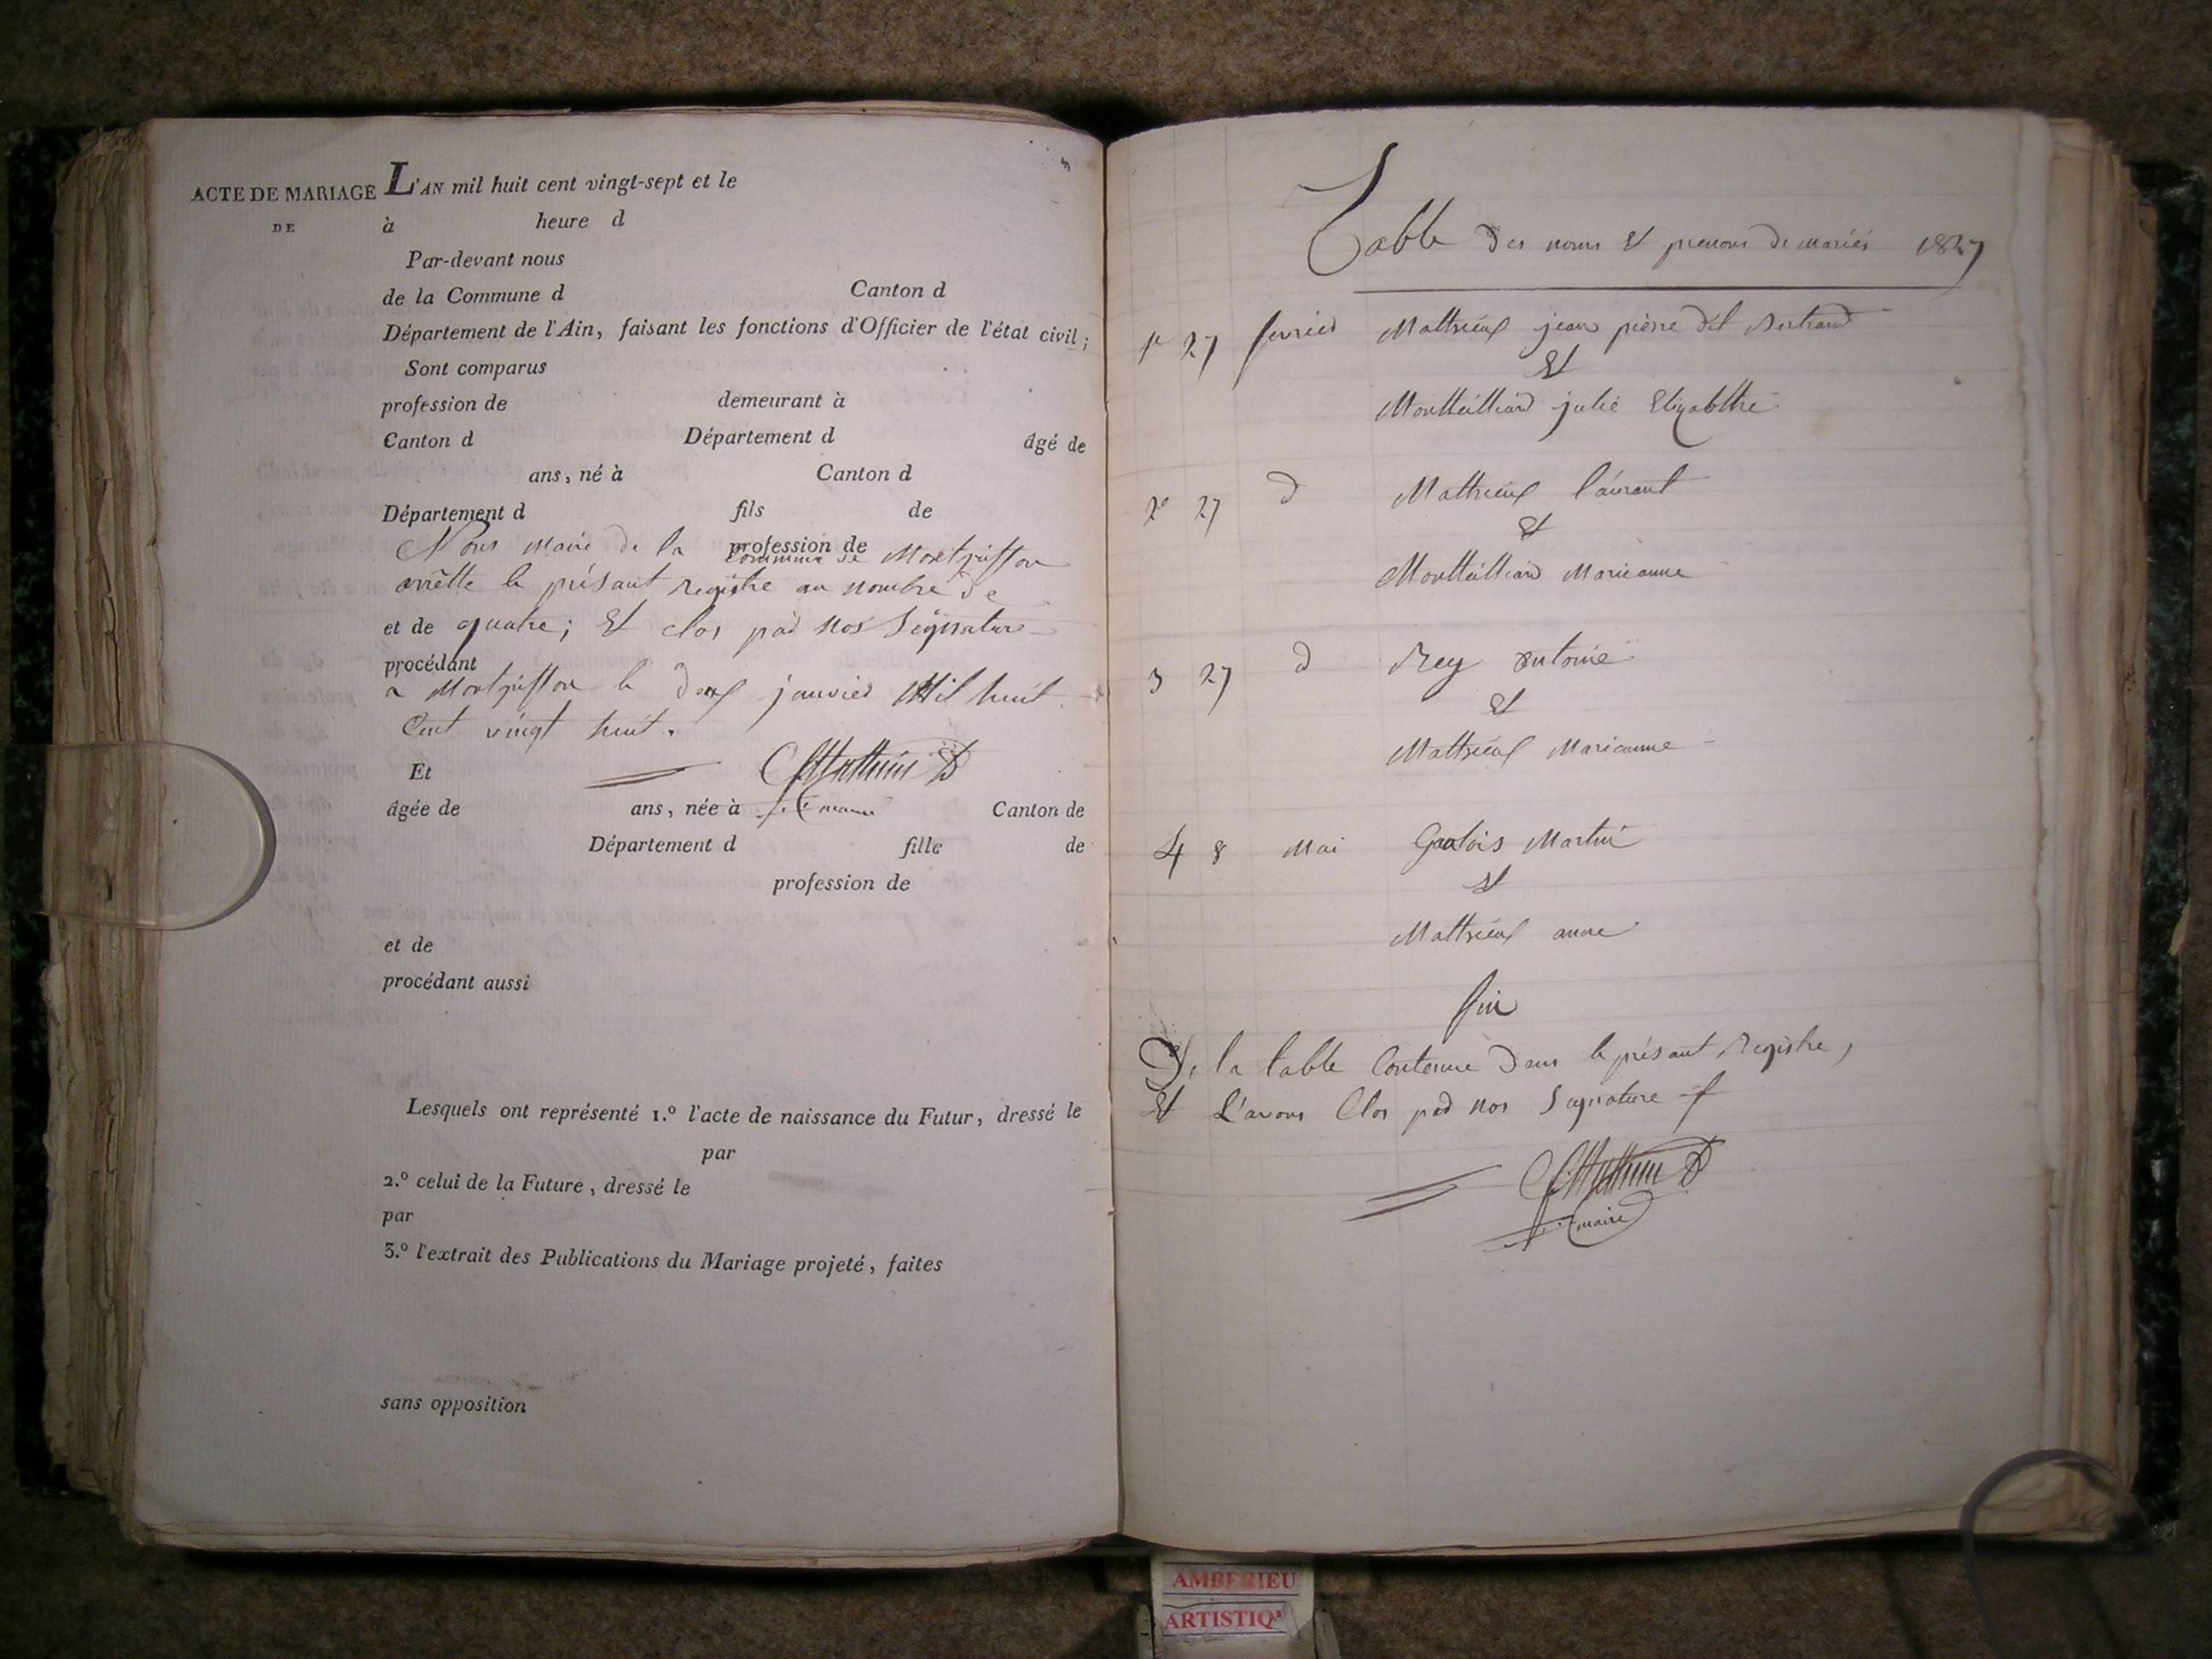 ACTE DE MARIAGE
DE
L'AN mil huit cent vingt-sept et le
à heure d
Par-devant nous
de la Commune d Canton d
Département de l'Ain, faisant les fonctions d'Officier de l'état civil;
Sont comparus
profession de demeurant à
Canton d Département d âgé de
ans, né à Canton d
Département d fils de
profession de
Nous maire de la commune de Montgriffon
arrêtte le présant registre au nombre de
et de quatre; Et clos par nos Signature
procédant
a Montgriffon le deux janvier Mil huit
Cent vingt huit.
Et
âgée de ans, née à Canton de
Département d fille de
profession de
et de
procédant aussi
Lesquels ont représenté 1.º l'acte de naissance du Futur, dressé le
par
2.º celui de la Future, dressé le
par
3.º l'extrait des Publications du Mariage projeté, faites
sans opposition
Table des noms Et prenons de mariés 1827
1e 27 fevrier Mathieux jean pierre dit Bertrand
Et
Montteilliard julie Elizabthe
2e 27 d Mathieux laurant
Et
Montteilliard Marieanne
3 27 d Rey antoine
Et
Mathieux Marieanne
4 8 Mai Galois Martin
Et
Mathieux anne
fin
De la table Contenue Dans le présant Registre,
Et L'avons Clos par nos Signature
maire
AMBERIEU
ARTISTIQ